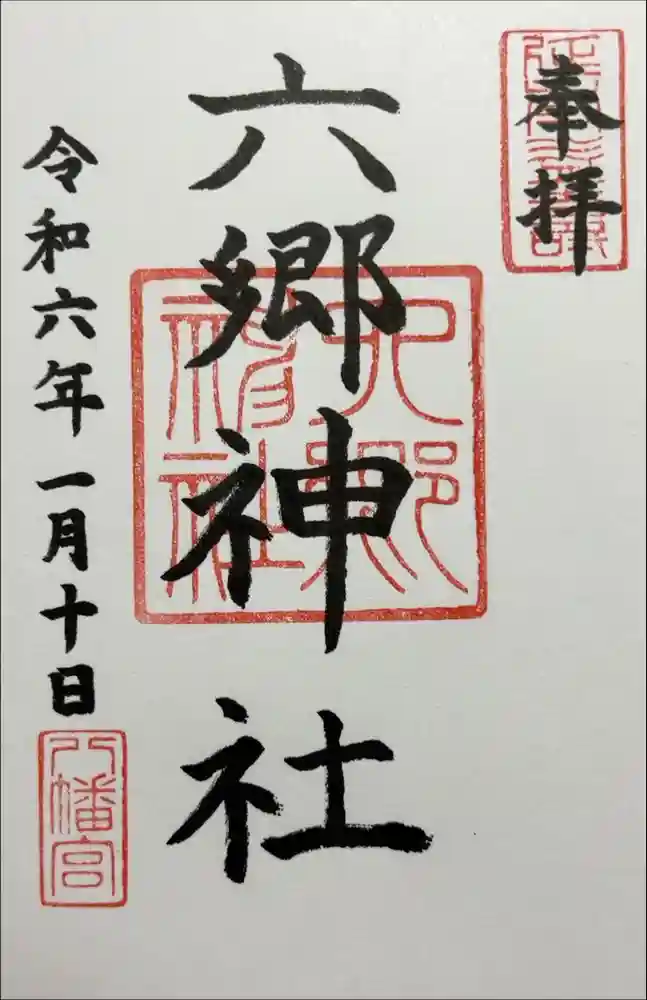 奉拝
六郷神社
六郷神社
令和六年一月十日
八幡宮